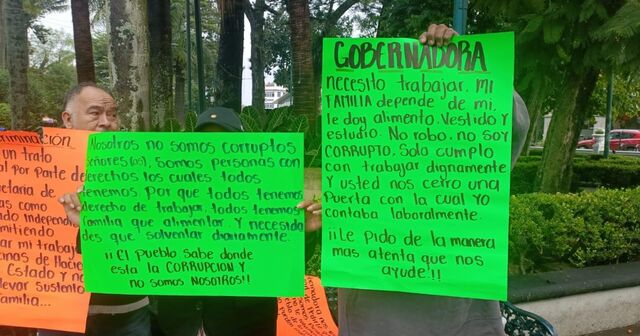 criminación.
un trato
al por parte de
retaria de
ndo independi
mitiendo
ar mi trabaj
cinas de Hacie
Estado y no
levar sustento
Familia...
Nosotros no somos corruptos
señores(as), Somos personas con
derechos los cuales todos
tenemos Por que todos tenemos
derecho de trabajar, todos tenemos
Familia que alimentar. Y necesida
des que solventar diariamente.
¡¡El pueblo sabe donde
esta la CORRUPCION y
no somos NOSOTROS!!
GOBERNADORA
necesito trabajar. MI
FAMILIA depende de mi.
le doy alimento. Vestido y
estudio. No robo. no soy
CORRUPTO. Solo cumplo
con trabajar dignamente
y usted nos cerro una
Puerta con la cual yo
contaba laboralmente.
¡¡Le pido de la manera
mas atenta que nos
ayude!!